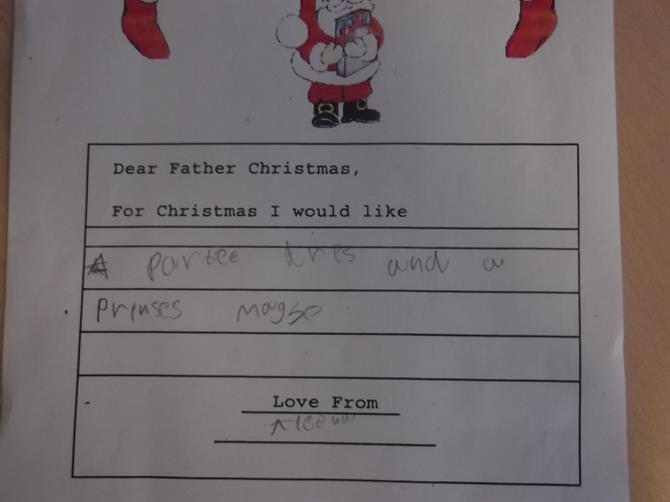 Dear Father Christmas,
For Christmas I would like
A partee dres and a
Prinses magse
Love From